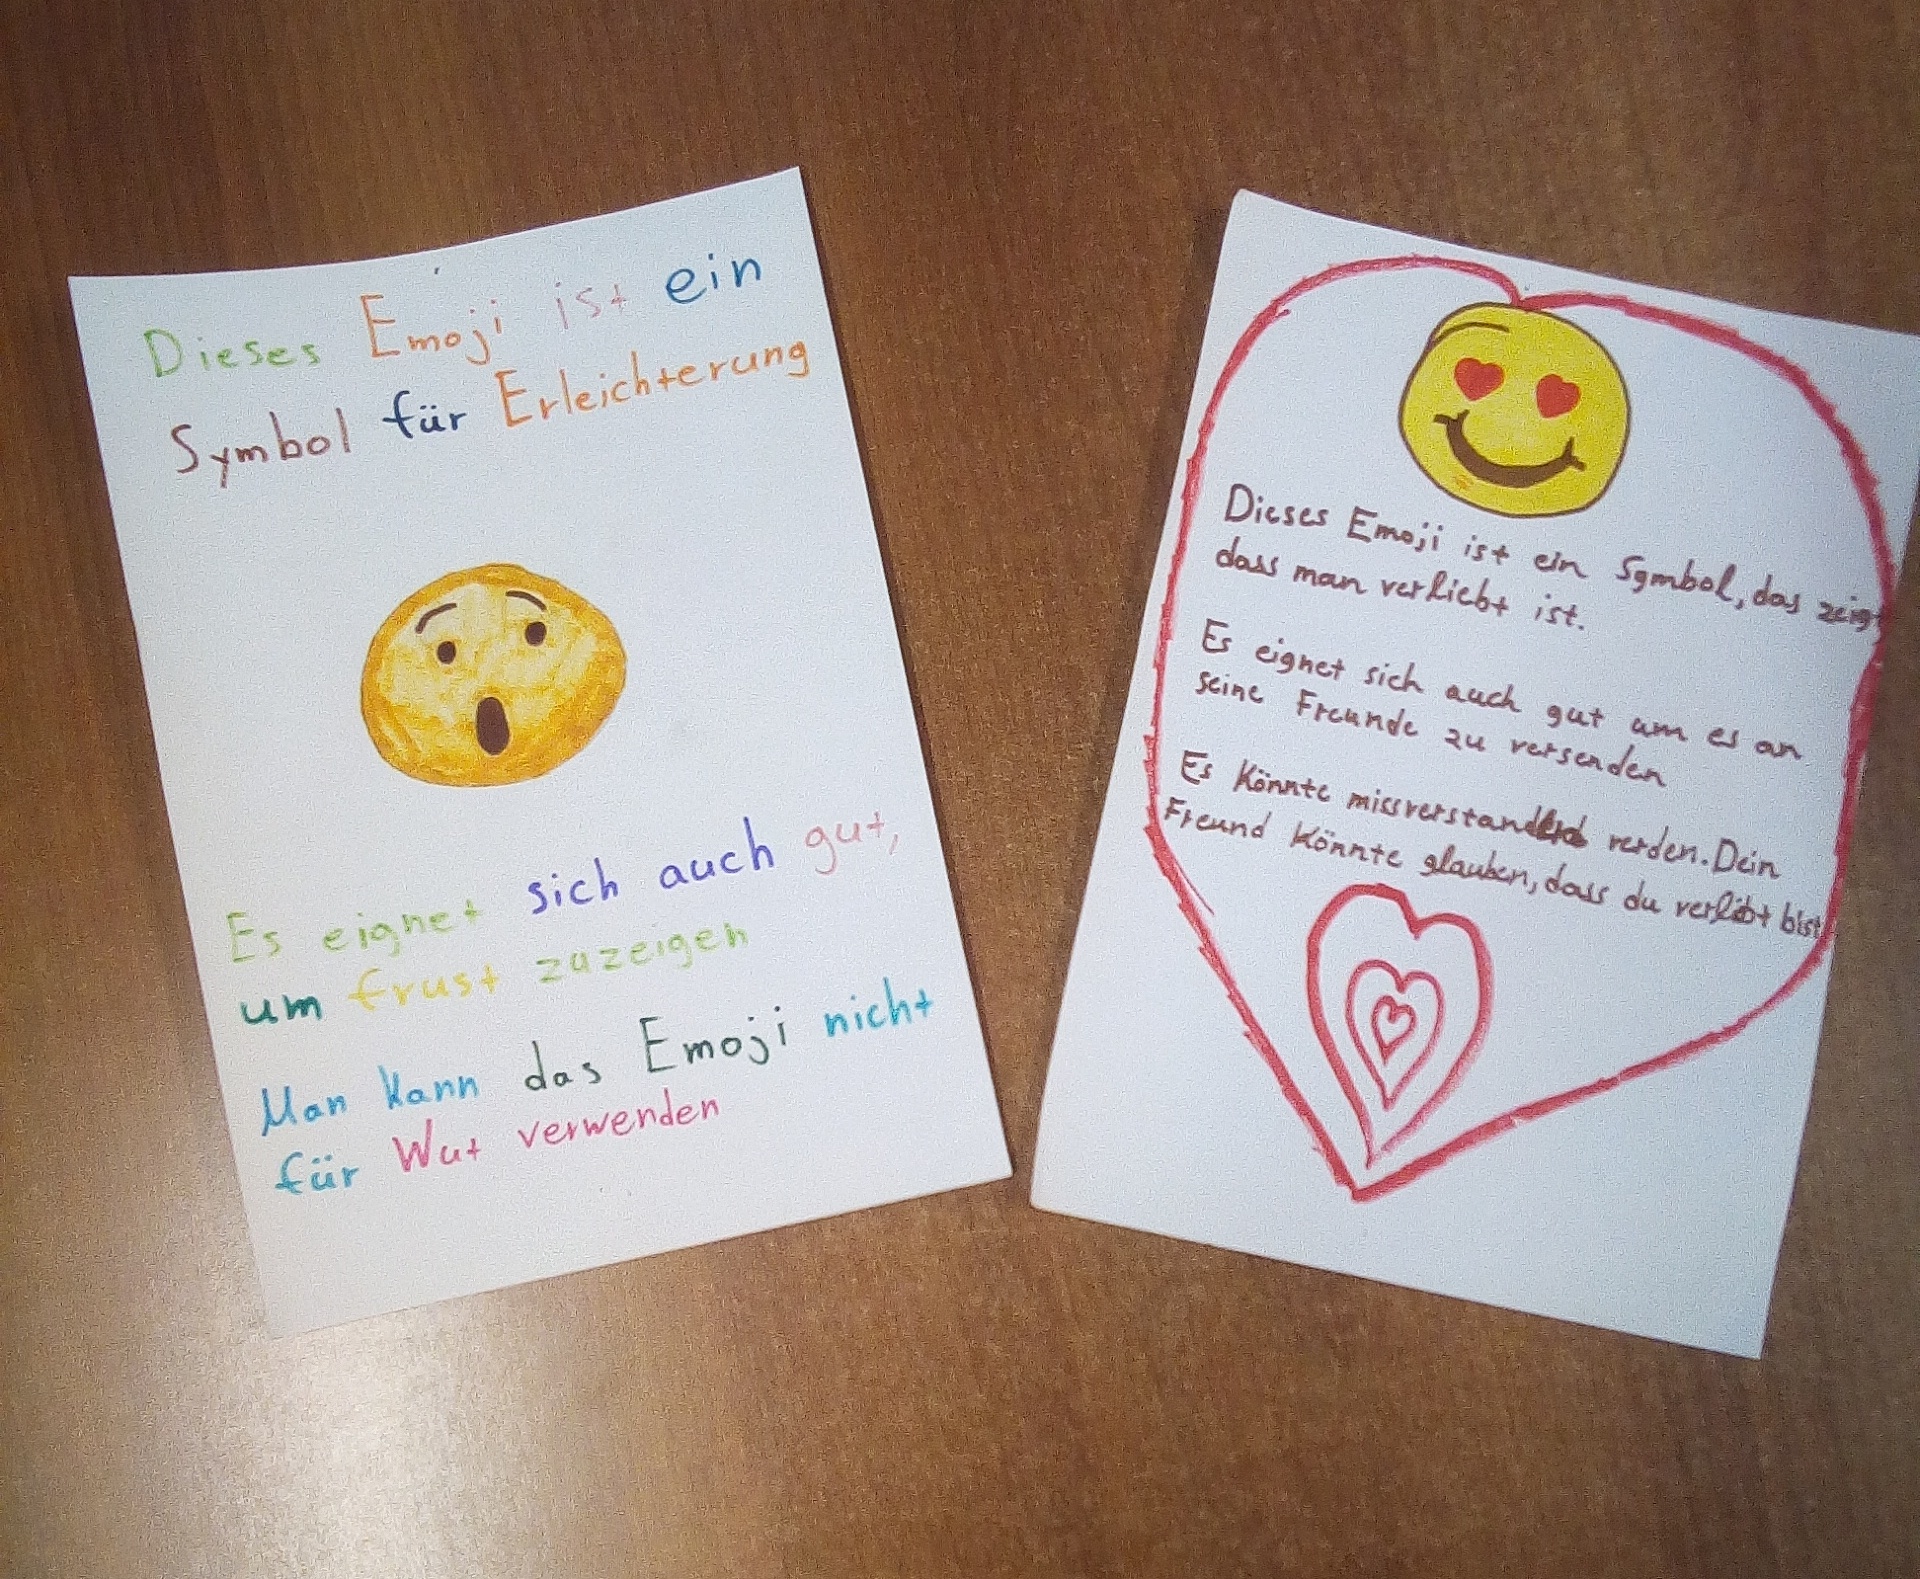 Dieses Emoji ist ein
Symbol für Erleichterung
Es eignet sich auch gut,
um frust zuzeigen
Man kann das Emoji nicht
für Wut verwenden
Dieses Emoji ist ein Symbol, das zeigt
dass man verliebt ist.
Es eignet sich auch gut um es an
seine Freunde zu versenden
Es könnte missverstanden verden. Dein
Freund könnte glauben, dass du verliebt bist